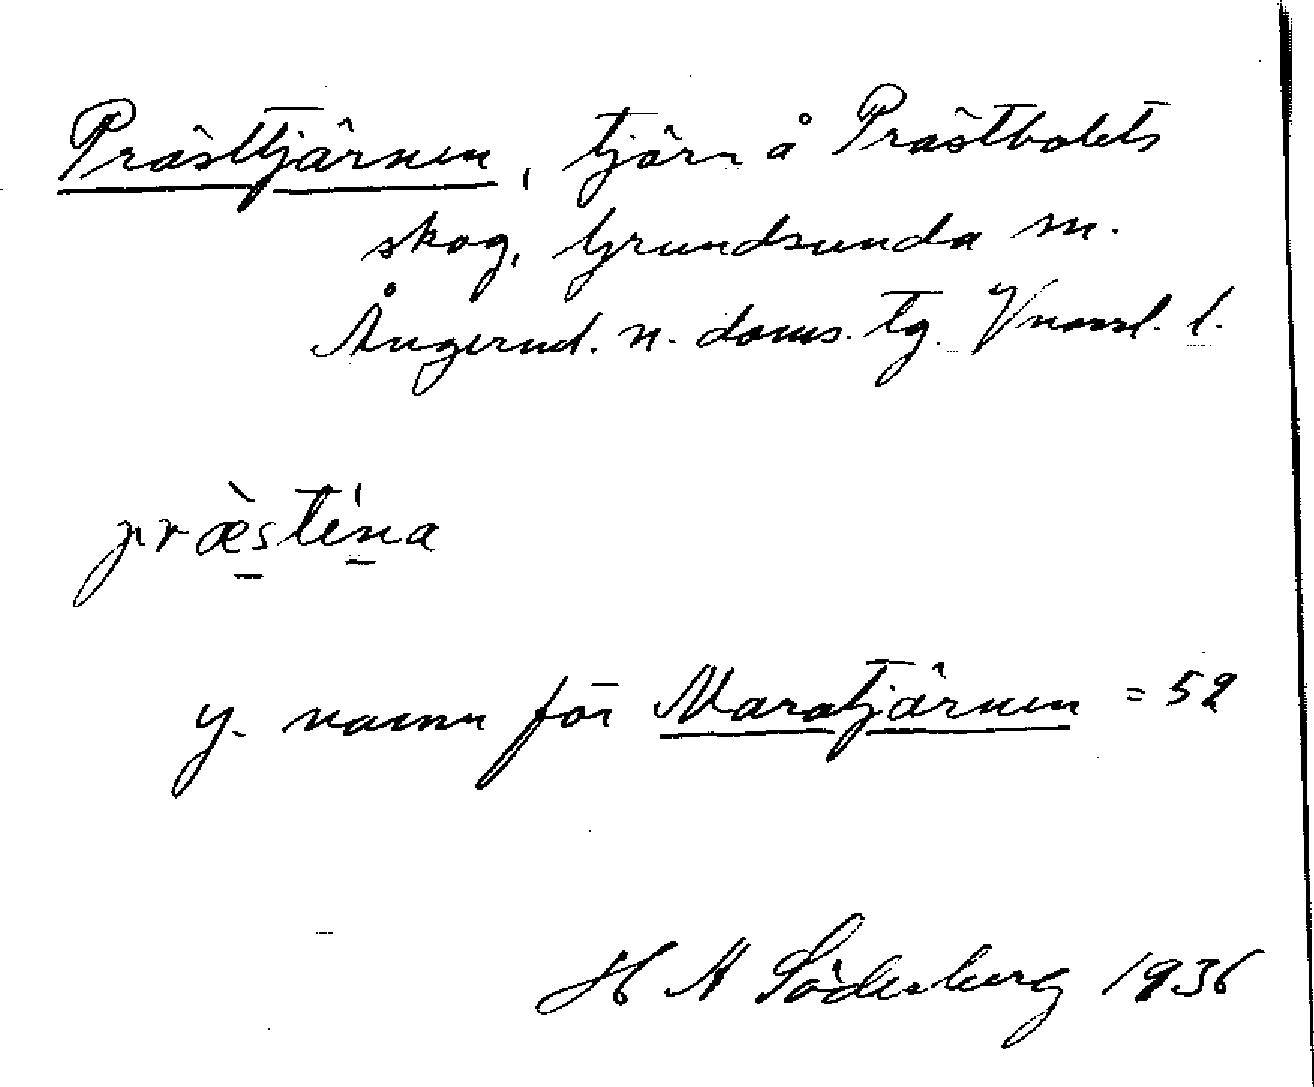 Prästtjärnen, tjärn å Prästbolets
skog, Grundsunda sn.
Ångerml. n. doms. tg. Vnorrl. l.
præ̀stíṇa
y. namn för Maratjärnen = 52
H A Söderberg 1936